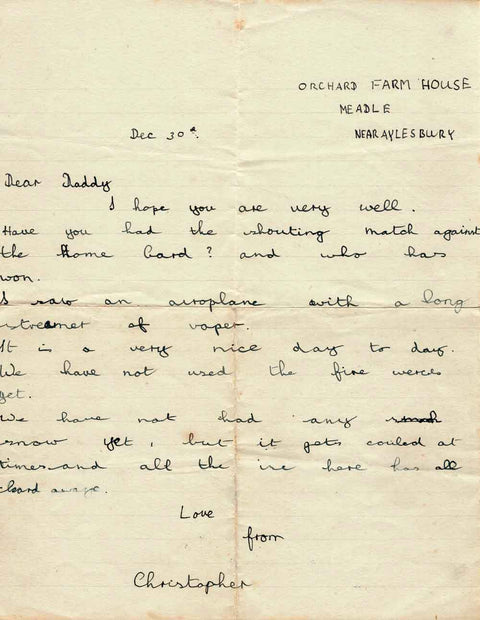 ORCHARD FARM HOUSE
MEADLE
NEAR AYLESBURY
Dec 30th.
Dear Daddy
I hope you are very well.
Have you had the shouting match against
the Home Gard? and who has
won.
I saw an airoplane with a long
streemer of vaper.
It is a very nice day to day.
We have not used the fire werces
yet.
We have not had any
snow yet, but it gets couled at
times and all the ice here has all
cleard awaye.
Love
from
Christopher